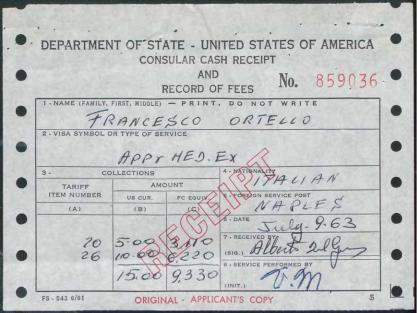 DEPARTMENT OF STATE - UNITED STATES OF AMERICA
CONSULAR CASH RECEIPT
AND
RECORD OF FEES
No. 859036
1 - NAME (FAMILY, FIRST, MIDDLE) — PRINT, DO NOT WRITE
FRANCESCO ORTELLO
2 - VISA SYMBOL OR TYPE OF SERVICE
APPT MED. EX
3 - COLLECTIONS
TARIFF ITEM NUMBER
(A)
AMOUNT
US CUR. (B)
FC EQUIV. (C)
20 5.00 3,110
26 10.00 6,220
15.00 9,330
4 - NATIONALITY
ITALIAN
5 - FOREIGN SERVICE POST
NAPLES
6 - DATE
July-9-63
7 - RECEIVED BY
(SIG.) Albert
8 - SERVICE PERFORMED BY
(INIT.) V.M.
RECEIPT
FS-543 6/61
ORIGINAL - APPLICANT'S COPY
S